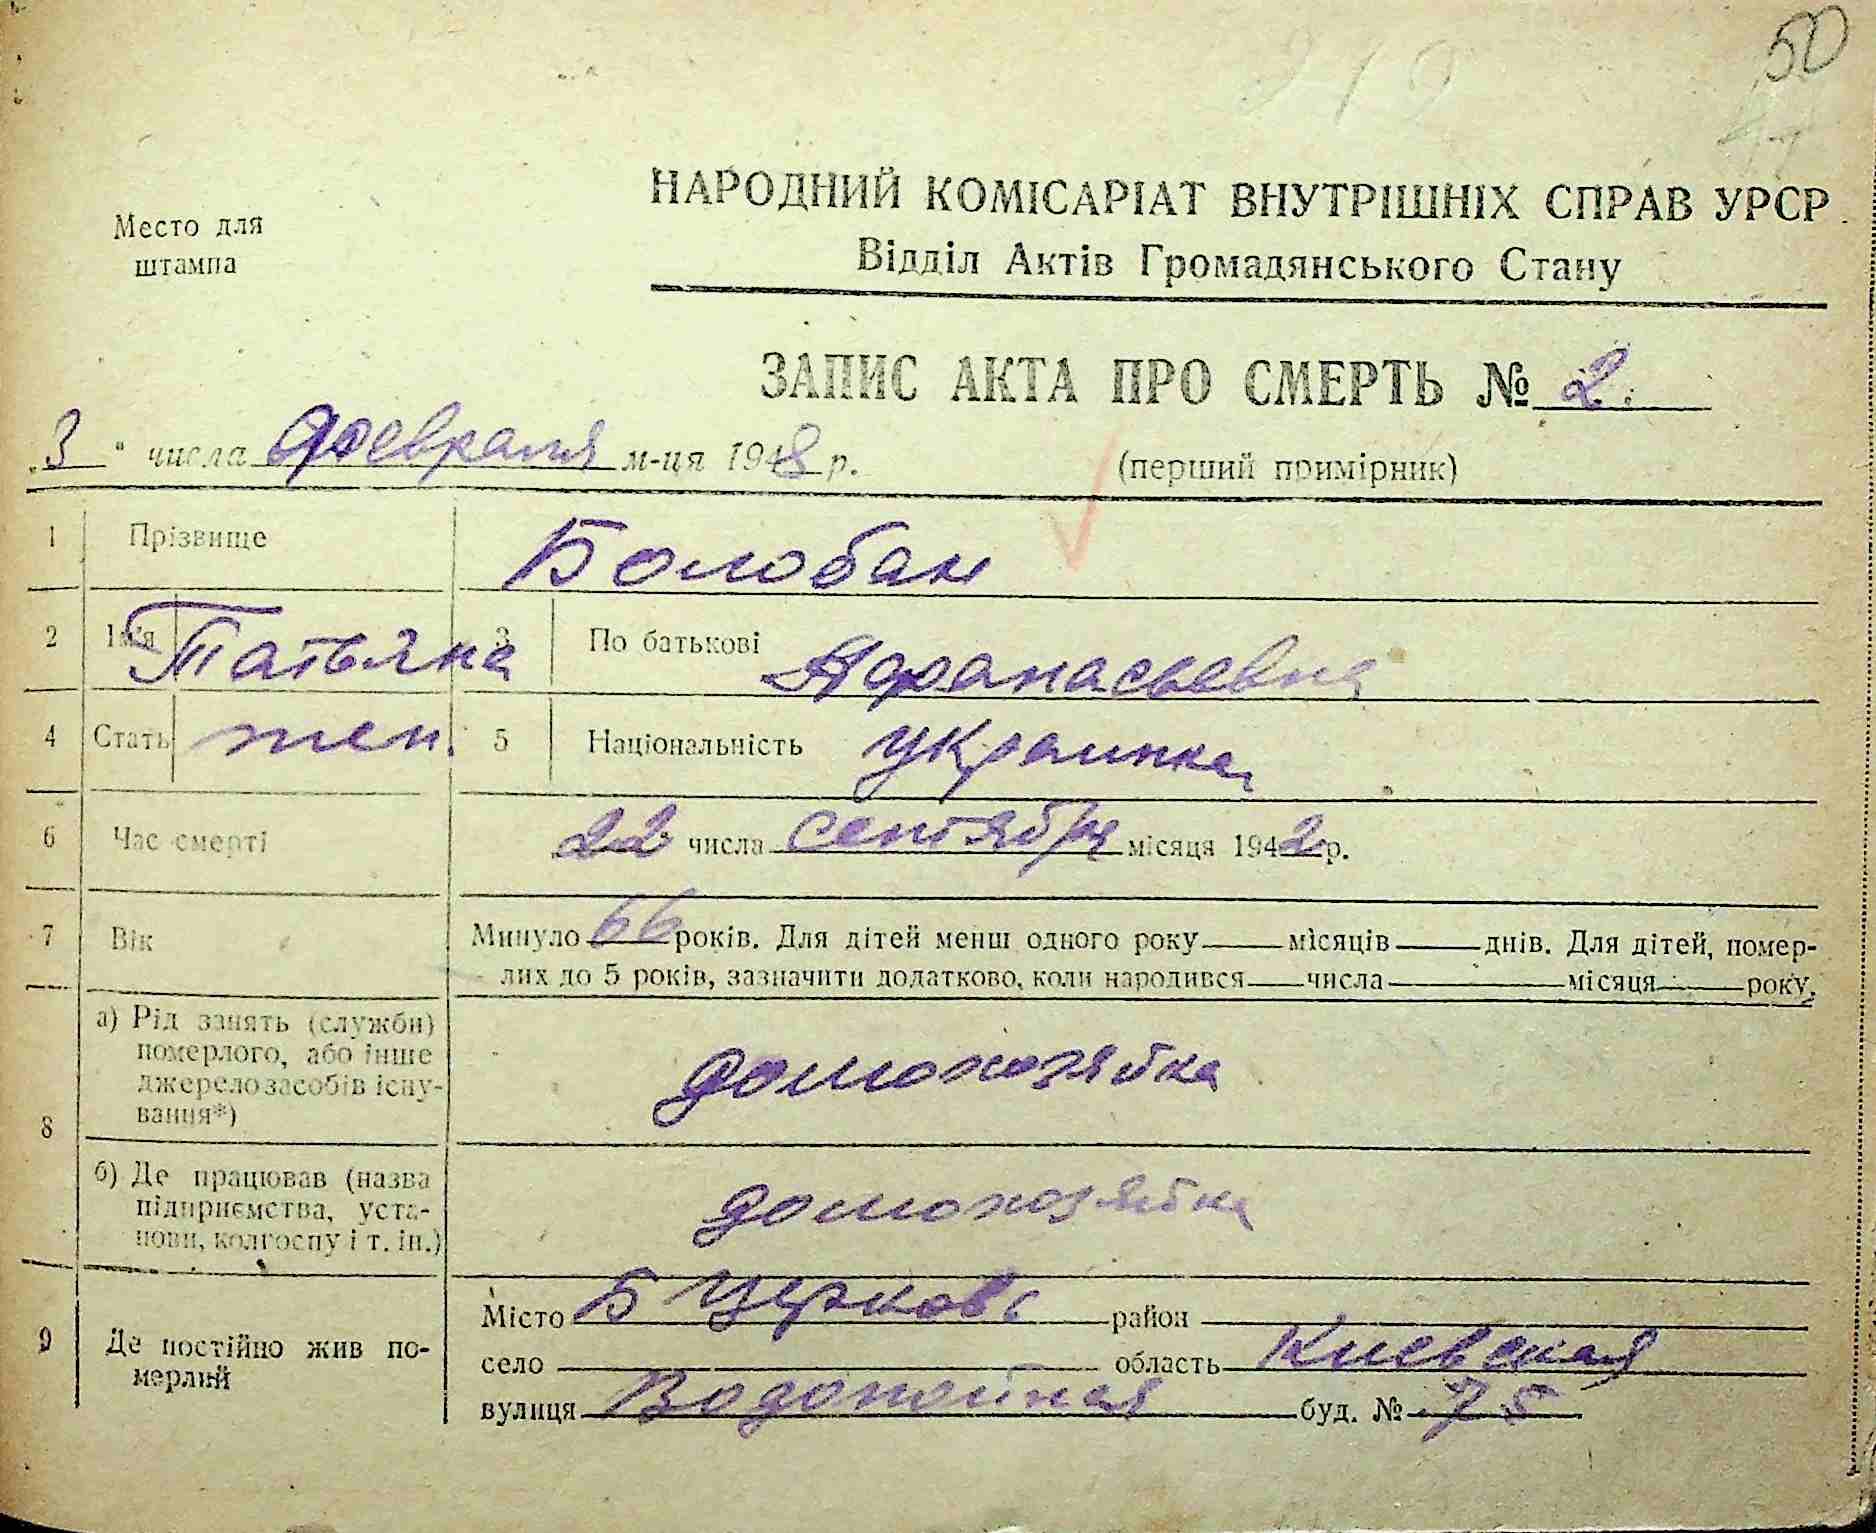 50
212
Место для
штампа
НАРОДНИЙ КОМІСАРІАТ ВНУТРІШНІХ СПРАВ УРСР
Відділ Актів Громадянського Стану
ЗАПИС АКТА ПРО СМЕРТЬ № 2.
"3" числа Февраля м-ця 1948 р.
(перший примірник)
1 Прізвище Болобан
2 Ім'я Татьяна 3 По батькові Афанасьевна
4 Стать жен. 5 Національність украинка
6 Час смерті 22 числа сентября місяця 1942 р.
7 Вік Минуло 66 років. Для дітей менш одного року — місяців — днів. Для дітей, помер-
лих до 5 років, зазначити додатково, коли народився — числа — місяця — року.
8 а) Рід занять (служби)
померлого, або інше
джерело засобів існу-
вання*) домохозяйка
б) Де працював (назва
підприємства, уста-
нови, колгоспу і т. ін.) домохозяйка
9 Де постійно жив по-
мерлий
Місто Б Церковь район
село область Киевская
вулиця Водопойная буд. № 75